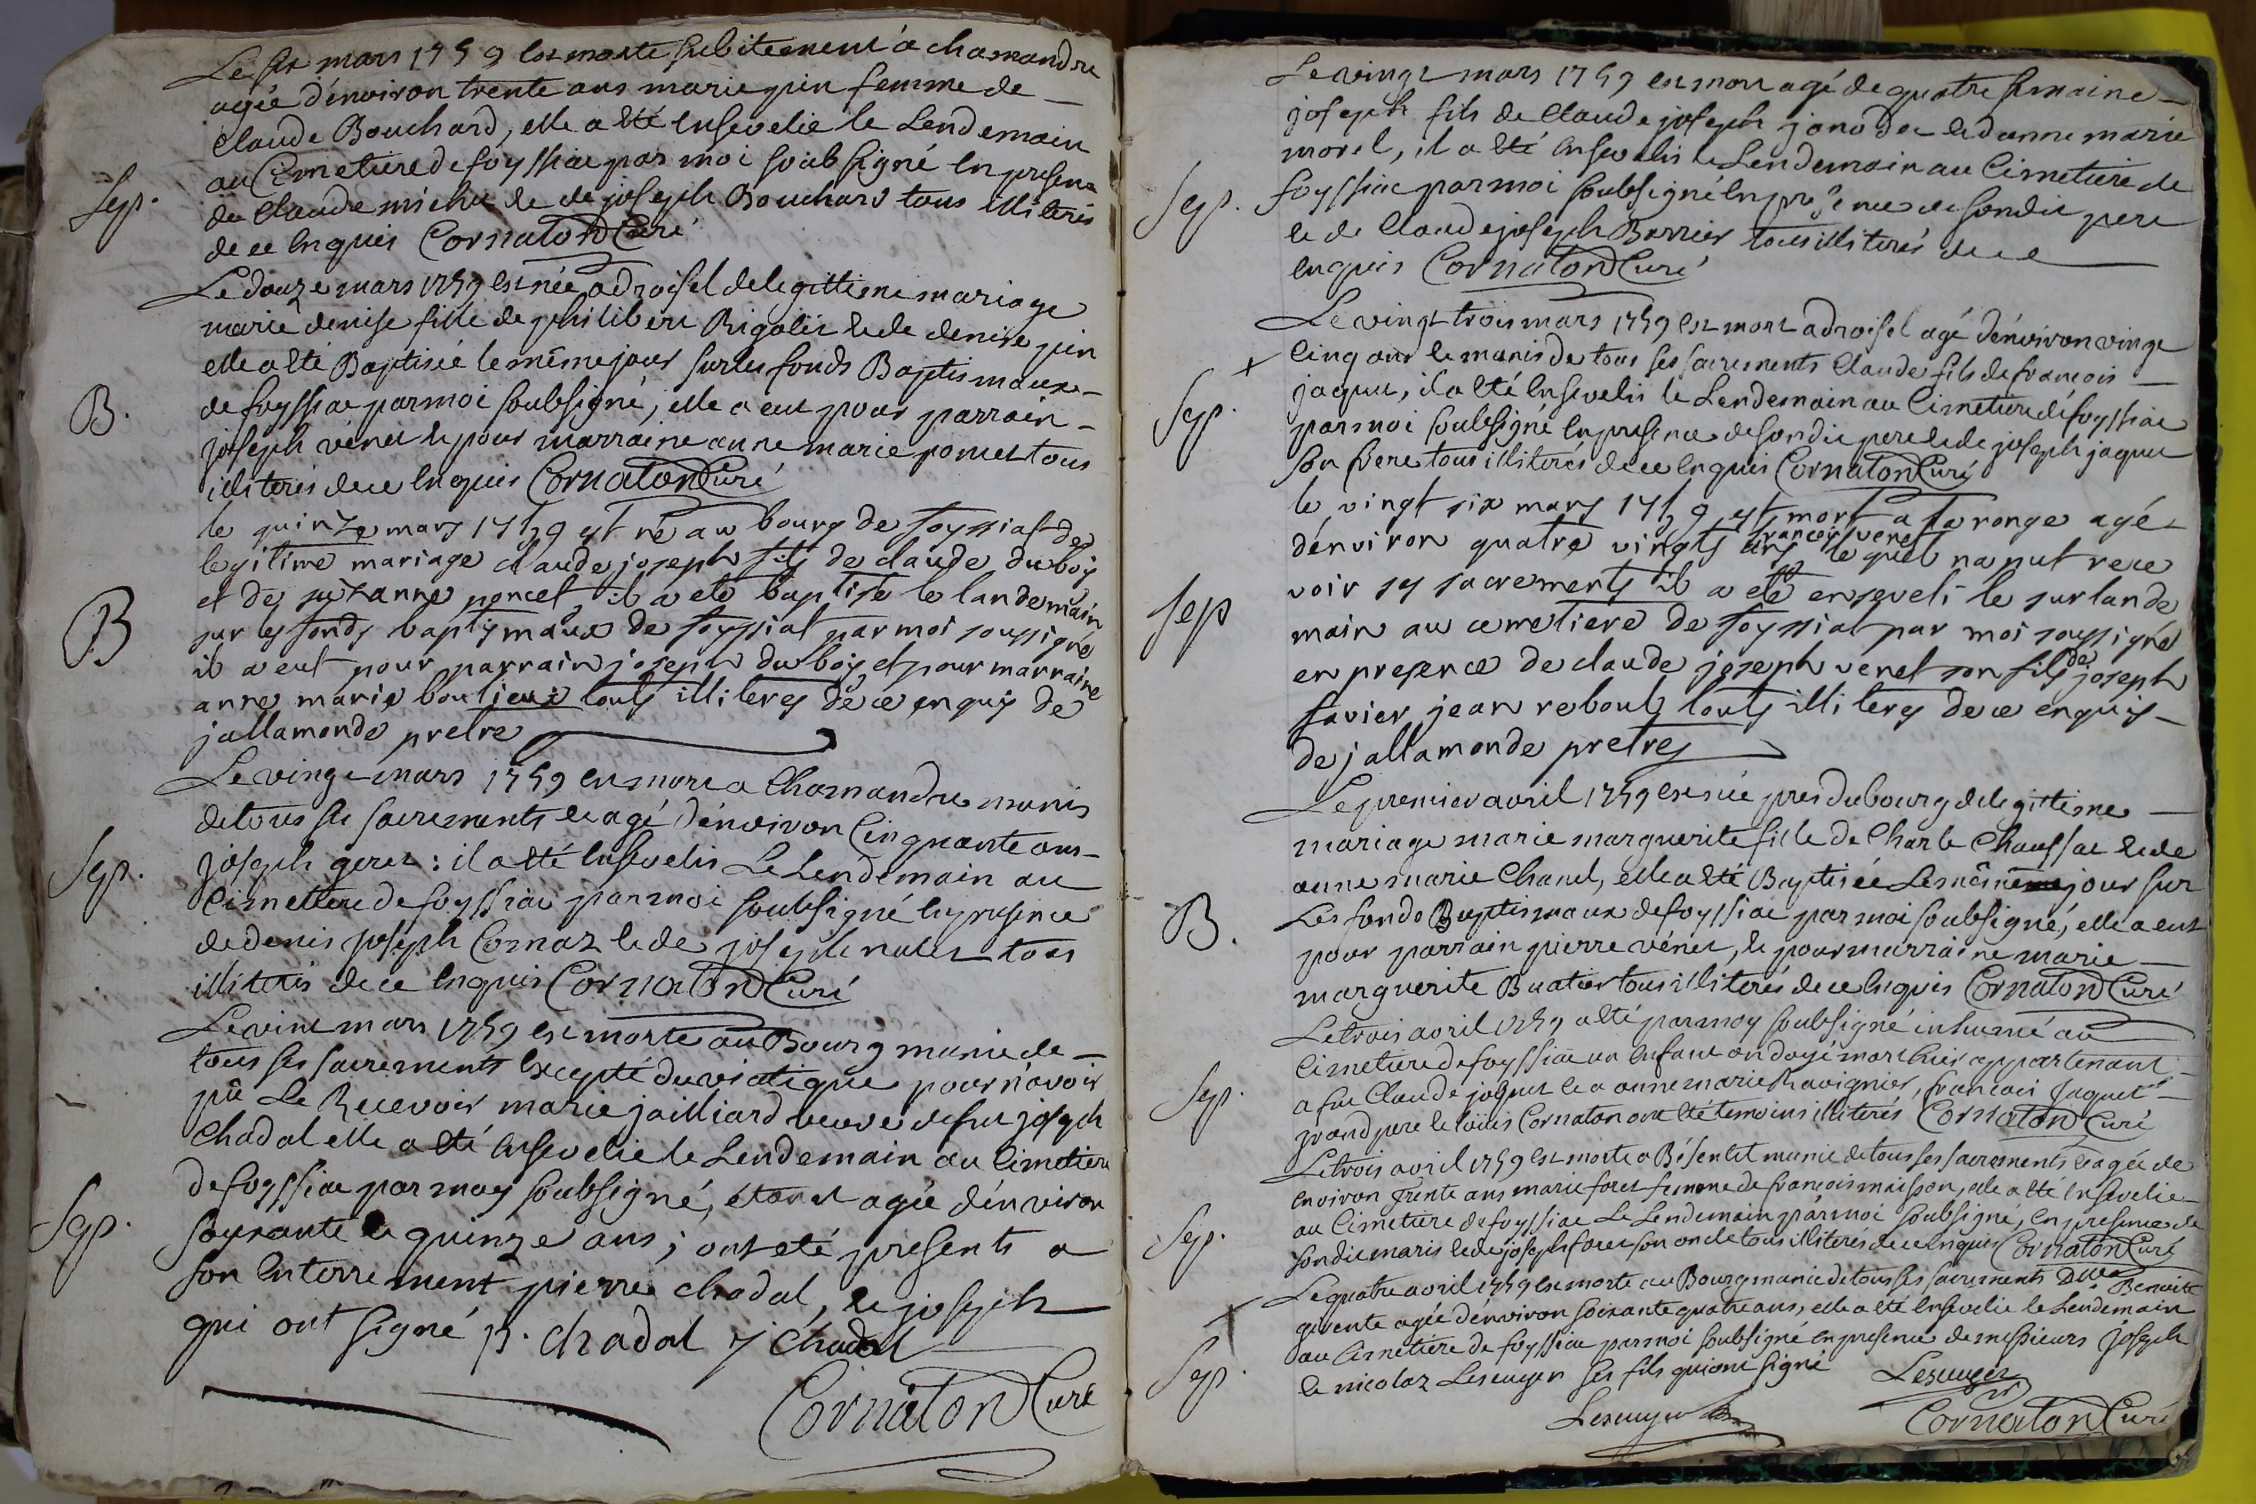 Le six mars 1759 est morte subitement a chamandre
agée d'énviron trente ans marie pin femme de
claude Bouchard, elle a été ensevelie le Lendemain
au Cimetiere de foyssiac par moi soubsigné en presence
Sep. de claude michu et de joseph Bouchard tous illiterés
de ce enquis Cornaton Curé
Le douze mars 1759 est née a droisel de legittime mariage
marie denise fille de philibert Rigolet et de denise pin
elle a été Baptisée le même jour sur les fonds Baptismaux
B. de foyssiac par moi soubsigné, elle a eut pour parrain
joseph vénet et pour marraine anne marie poncet tous
illiterés de ce enquis Cornaton Curé
le quinze mars 1759 est né au bourg de foyssiat de
legitime mariage claude joseph fils de claude du bois
et de suzanne poncet il a eté baptisé le landemain
B sur les fonds baptismaux de foyssiat par moi soussigné
il a eut pour parrain joseph du bois et pour marraine
anne marie boulieux touts illiterés de ce enquis de
jallamonde pretre
Le vingt mars 1759 est mort a Chamandre munis
de tous ses sacrements et agé d'énviron Cinquante ans
Sep. joseph : il a été ensevelis Le Lendemain au
Cimettiere de foyssiac par moi soubsigné en presence
de denis joseph Cornaz et de joseph tous
illiterés de ce enquis Cornaton Curé
Le vint mars 1759 est morte au Bourg munie de
tous ses sacrements Excepté du viatique pour n'avoir
pû Le Recevoir marie jailliard veuve de feu joseph
Chadal elle a été ensevelie le Lendemain au Cimetiere
de foyssiac par moy soubsigné, étant agée d'énviron
Sep. soixante et quinze ans ; ont eté presents a
son enterrement pierre chadal, et joseph
qui ont signé p. chadal j chadal
Cornaton Curé
Le vingt mars 1759 est mort agé de quatre semaine
joseph fils de Claude joseph janodoc et d'anne marie
morel, il a été ensevelis le Lendemain au Cimetiere de
Sep. foyssiac par moi soubsigné en presence de sondit pere
et de Claude joseph Borrier tous illiterés de ce
enquis Cornaton Curé
Le vingt trois mars 1759 est mort a droisel agé d'énviron vingt
x Cinq ans et munis de tous ses sacrements Claude fils de francois
Sep. jaquet, il a été ensevelis le Lendemain au Cimetiere de foyssiac
par moi soubsigné en presence de sondit pere et de joseph jaquet
son frere tous illiterés de ce enquis Cornaton Curé
le vingt six mars 1759 est mort a la ronge agé
francois venet
dénviron quatre vingts ans le quel na put rece
Sep voir ses sacrements il a eté enseveli le surlande
main au cemetiere de foyssiat par moi soussigné
en presence de claude joseph venet son fils de joseph
favier jean reboul touts illiterés de ce enquis
de jallamonde pretre
Le premier avril 1759 est née pres du bourg de legittime
mariage marie marguerite fille de Charle Chaussac et de
anne marie Chanel, elle a été Baptisée Le même jour sur
B. Les fonds Baptismaux de foyssiac par moi soubsigné, elle a eut
pour parrain pierre vénet, et pour marraine marie
marguerite Buatier tous illiterés de ce enquis Cornaton Curé
Le trois avril 1759 a été par moy soubsigné inhumé au
Cimetiere de foyssiac un enfant ondoyé mort hier appartenant
Sep. a feu Claude jaquet et a anne marie Ravignier, francois Jaquet
grand pere et loüis Cornaton ont été temoins illiterés Cornaton Curé
Le trois avril 1759 est morte a Bésentet munie de tous ses sacrements et agée de
environ trente ans marie foret femme de francois maisson, elle a été ensevelie
au Cimetiere de foyssiac Le Lendemain par moi soubsigné, en presence de
Sep. sondit maris et de joseph foret son oncle tous illiterés de ce enquis Cornaton Curé
Le quatre avril 1759 est morte au Bourg munie de tous ses sacrements Dlle Benoite
givente agée d'énviron soixante quatre ans, elle a été ensevelie le Lendemain
au Cimetiere de foyssiac par moi soubsigné en presence de messieurs joseph
Sep. et nicolaz Lescuyer ses fils qui ont signé Lescuyer
Lescuyer Cornaton Curé